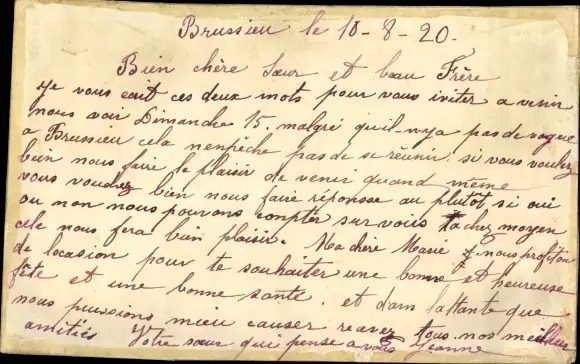 Brussieu le 10-8-20-
Bien chère Sœur et beau Frère
je vous ecrit ces deux mots pour vous inviter a venir
nous voir Dimanche 15. malgré quil-n-ya pas de vogue
a Brussieu cela nenpêche pas de se réunir. si vous voulez
bien nous faire le plaisir de venir quand même
vous voudrez bien nous faire réponsse au plutot si oui
ou non nous pouvons compter sur vous tachez moyen
cela nous fera bien plaisir. Ma chère Marie nous profiton
de locasion pour te souhaiter une bonne et heureuse
fête et une bonne sante. et dans lattante que
nous puissions mieu causer recevez tous nos meilleur
amitiés Votre sœur qui pense a vous Jeanne